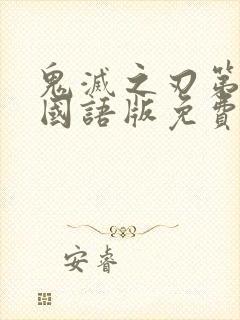 鬼滅之刃第
國語版免費
安睿